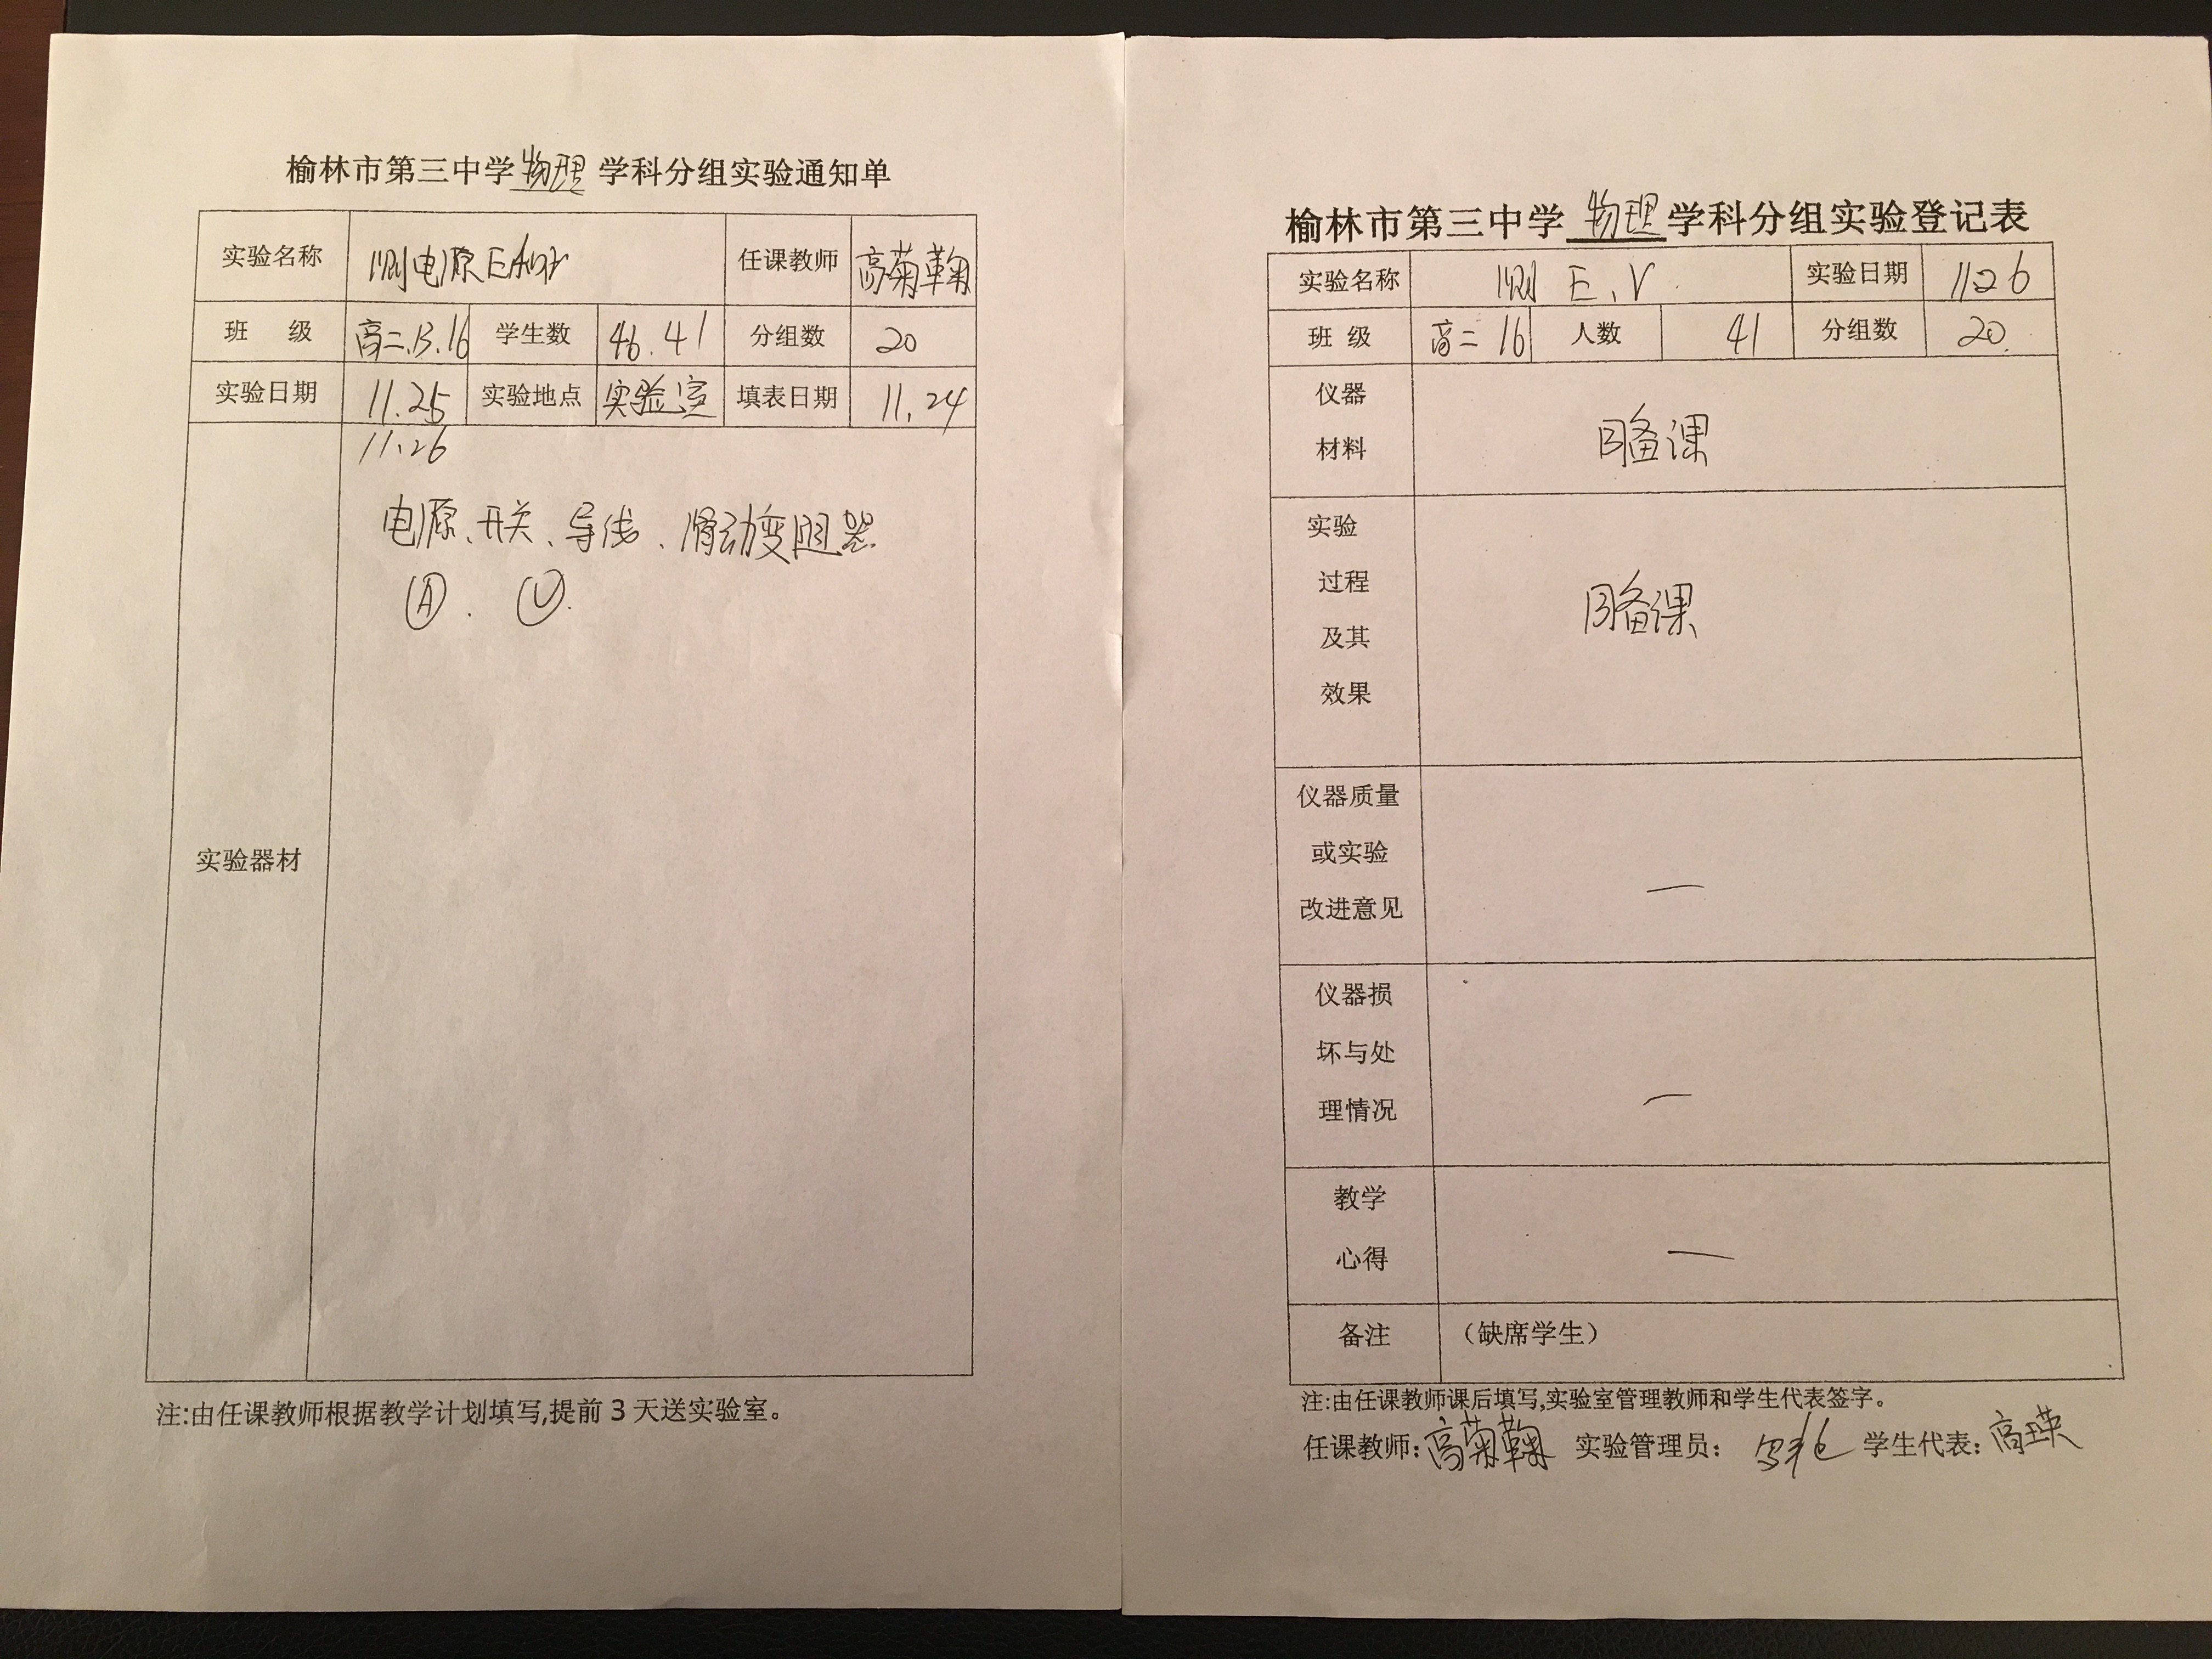 榆林市第三中学物理学科分组实验通知单
实验名称 测电源E和r 任课教师 高菊鞠
班 级 高二.13.16 学生数 46.41 分组数 20
实验日期 11.25 实验地点 实验室 填表日期 11.24
11.26
电源、开关、导线、滑动变阻器
Ⓐ. Ⓥ.
实验器材
注:由任课教师根据教学计划填写,提前 3 天送实验室。
榆林市第三中学 物理 学科分组实验登记表
实验名称 测 E、r. 实验日期 11.26
班 级 高二 16 人数 41 分组数 20.
仪器
材料
备课
实验
过程
及其
效果
备课
仪器质量
或实验
改进意见
—
仪器损
坏与处
理情况
—
教学
心得
—
备注 (缺席学生)
注:由任课教师课后填写,实验室管理教师和学生代表签字。
任课教师: 高菊鞠 实验管理员: 学生代表: 高瑛